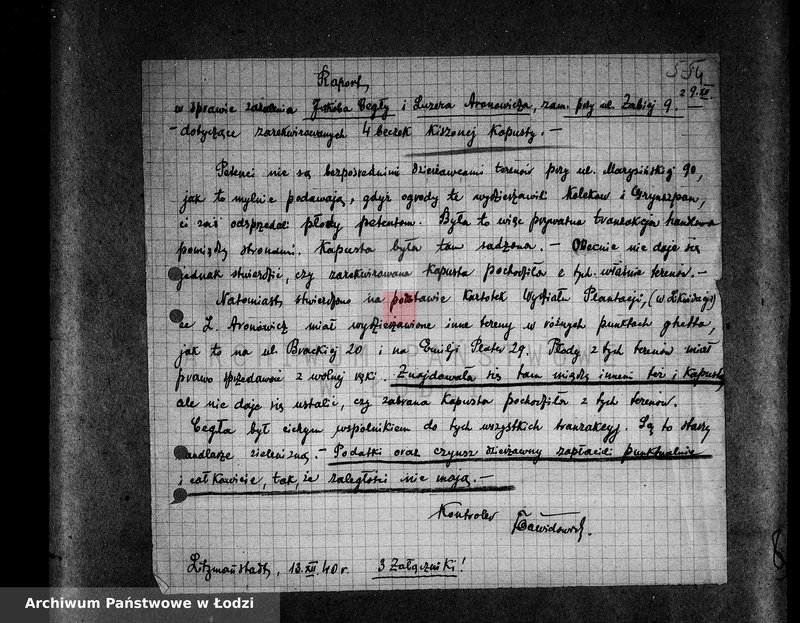 554
Raport
29.XII.
w sprawie zażalenia Jakoba Cegły i Luzera Aronowicza, zam. przy ul. Żabiej 9.
dotyczące zarekwirowanych 4 beczek kiszonej kapusty. —
Petenci nie są bezpośrednimi dzierżawcami terenów przy ul. Marysińskiej 90,
jak to mylnie podawają, gdyż ogrody te wydzierżawili Kolekow i Grynszpan,
ci zaś odsprzedali płody petentom. Była to więc prywatna tranzakcja handlowa
pomiędzy stronami. Kapusta była tam sadzona. — Obecnie nie daje się
jednak stwierdzić, czy zarekwirowana kapusta pochodziła z tych właśnie terenów. —
Natomiast stwierdzono na podstawie kartotek Wydziału Plantacji, (w Likwidacji)
że L. Aronowicz miał wydzierżawione inne tereny w różnych punktach ghetta,
jak to na ul. Brackiej 20 i na Emilji Plater 29. Płody z tych terenów miał
prawo sprzedawać z wolnej ręki. Znajdowała się tam między innemi też i kapusta,
ale nie daje się ustalić, czy zabrana kapusta pochodziła z tych terenów.
Cegła był cichym wspólnikiem do tych wszystkich tranzakcyj. Są to starzy
handlarze zieleniną. — Podatki oraz czynsz dzierżawny zapłacili punktualnie
i całkowicie, tak, że zaległości nie mają. —
Kontroler Dawidowicz.
Litzmanstadt, 13.XII.40 r. 3 Załączniki!
8
Archiwum Państwowe w Łodzi